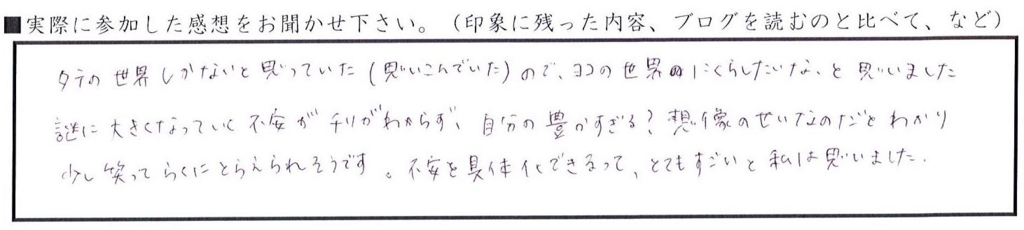 ■実際に参加した感想をお聞かせ下さい。（印象に残った内容、ブログを読むのと比べて、など）
タテの世界しかないと思っていた（思いこんでいた）ので、ヨコの世界にくらしたいな、と思いました
謎に大きくなっていく不安がチリがわからず、自分の豊かすぎる？想像のせいなのだとわかり
少し笑ってらくにとらえられそうです。不安を具体化できるって、とてもすごいと私は思いました.